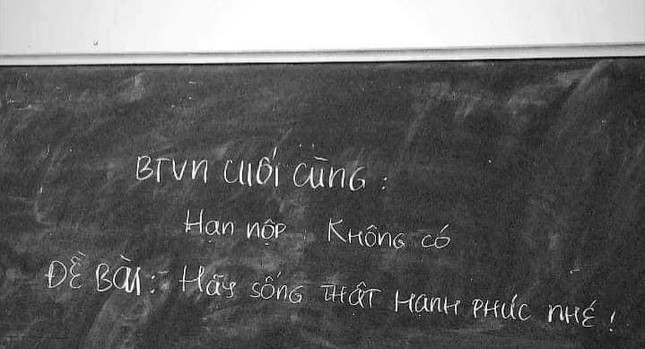 BTVN CUỐI CÙNG:
Hạn nộp: KHÔNG CÓ
ĐỀ BÀI: HÃY SỐNG THẬT HẠNH PHÚC NHÉ!